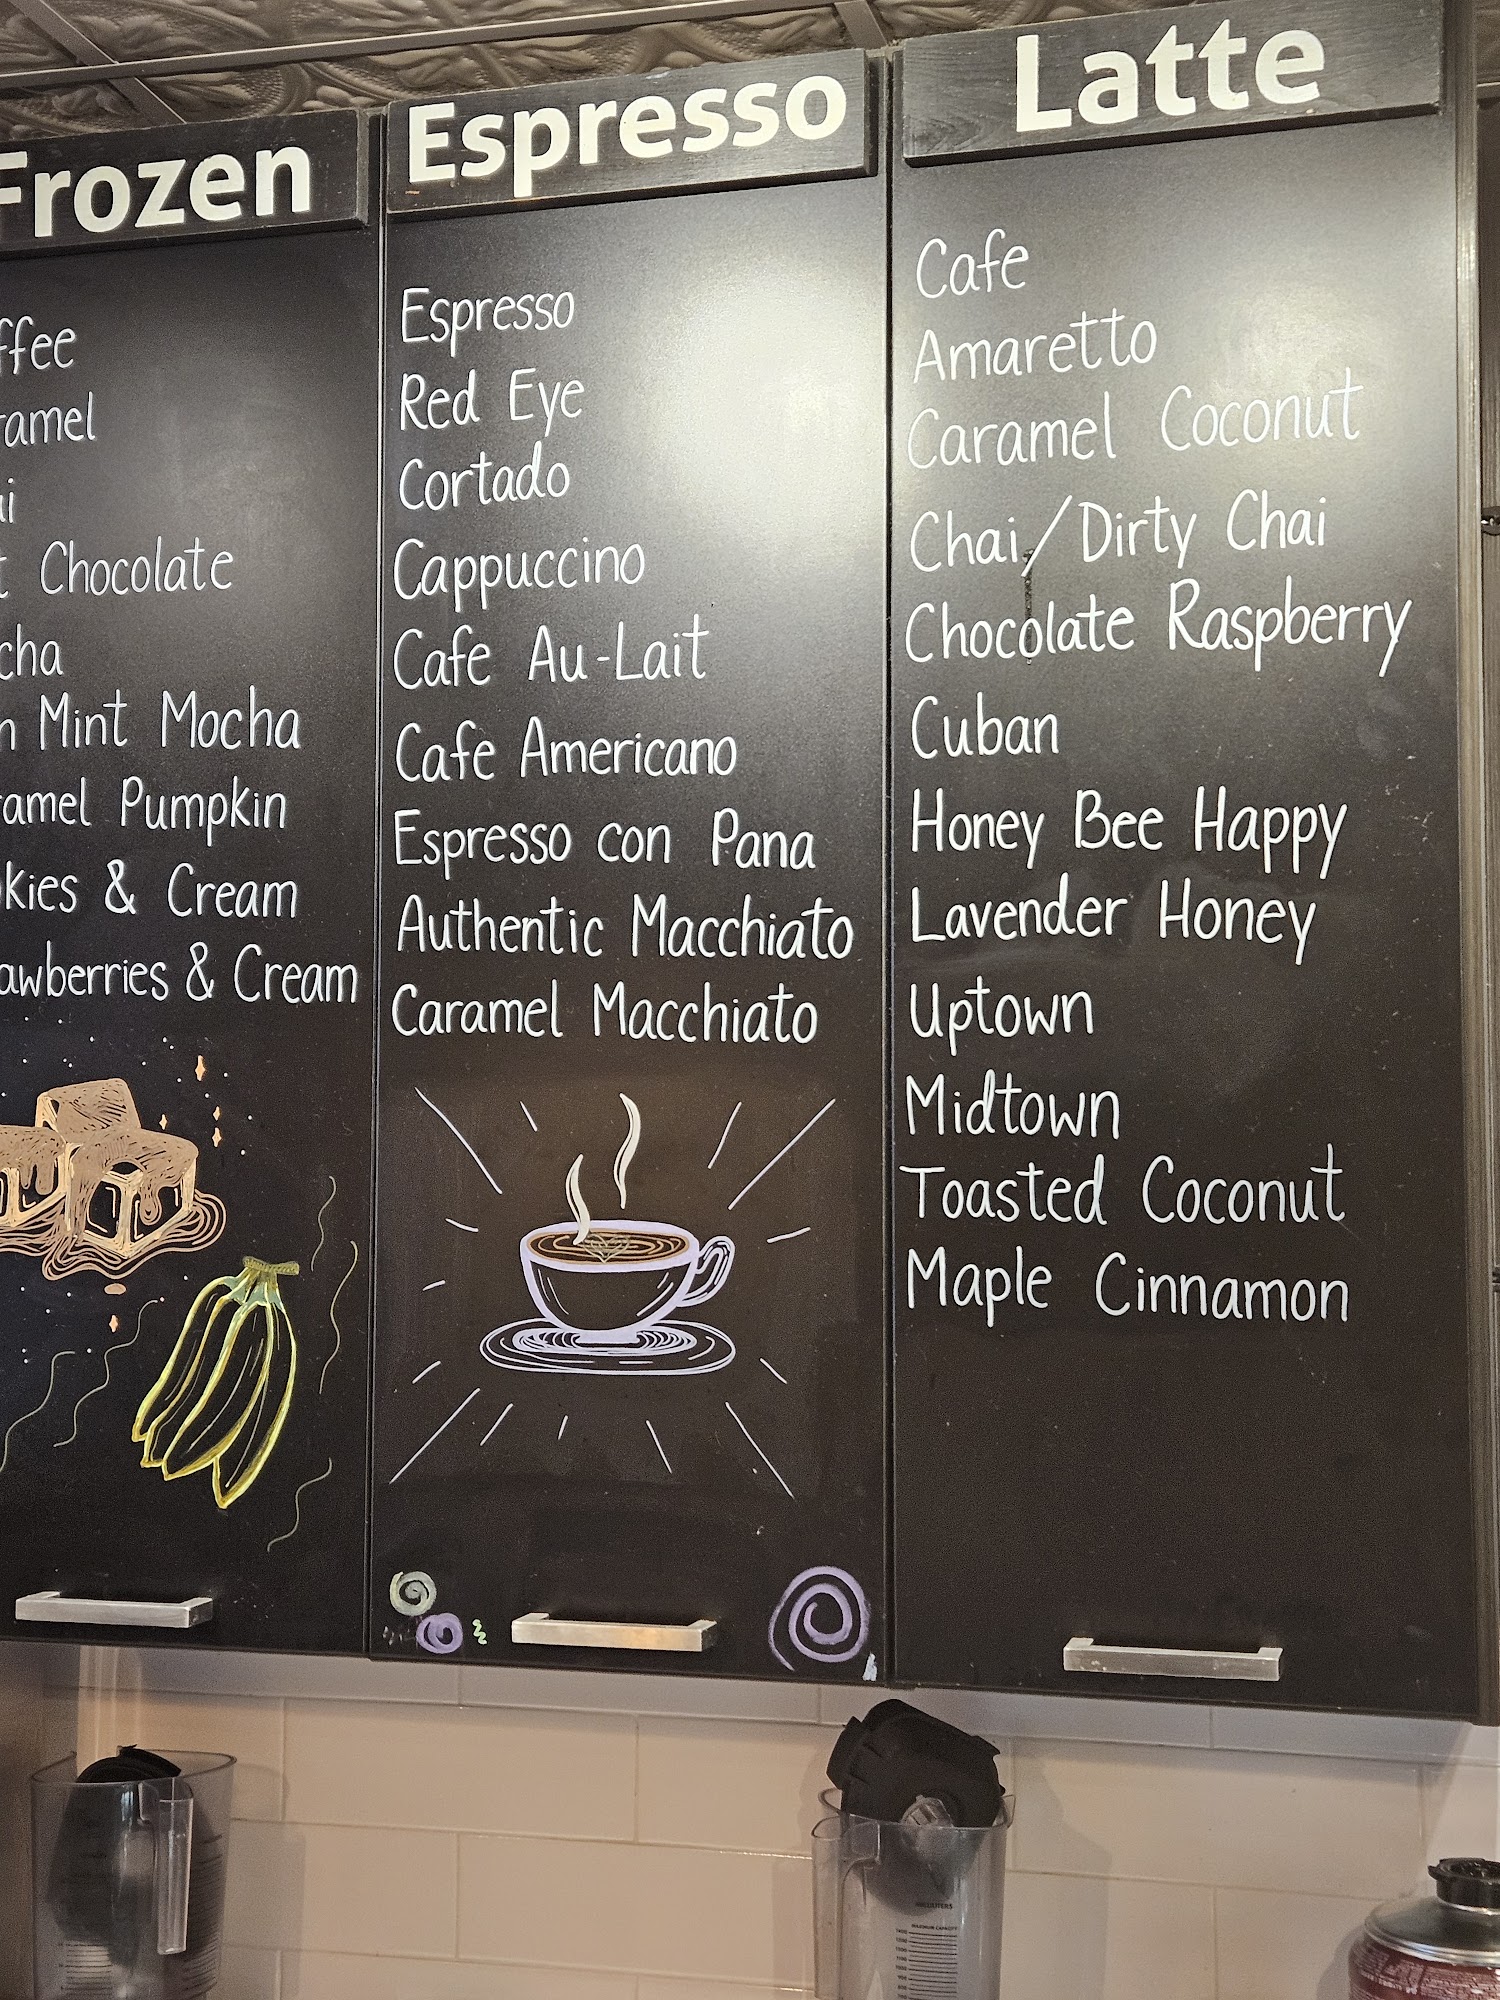 Frozen
Chocolate
Mint Mocha
Pumpkin
& Cream
& Cream
Espresso
Espresso
Red Eye
Cortado
Cappuccino
Cafe Au-Lait
Cafe Americano
Espresso con Pana
Authentic Macchiato
Caramel Macchiato
Latte
Cafe
Amaretto
Caramel Coconut
Chai/Dirty Chai
Chocolate Raspberry
Cuban
Honey Bee Happy
Lavender Honey
Uptown
Midtown
Toasted Coconut
Maple Cinnamon